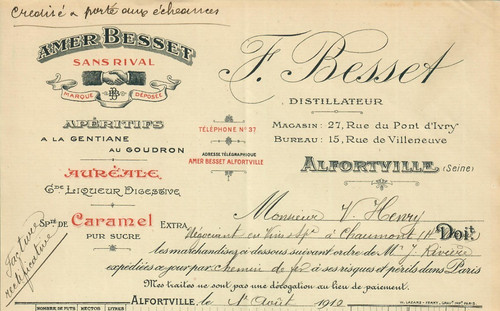 Credisé a porté aux échéances
AMER BESSET
SANS RIVAL
MARQUE DÉPOSÉE
APÉRITIFS
A LA GENTIANE
AU GOUDRON
AURÉALE
Gde LIQUEUR DIGESTIVE
Spté DE Caramel EXTRA
PUR SUCRE
Facture
rectificative
TÉLÉPHONE N° 37
ADRESSE TÉLÉGRAPHIQUE
AMER BESSET ALFORTVILLE
F. Besset
DISTILLATEUR
MAGASIN: 27, RUE DU PONT D'IVRY
BUREAU: 15, RUE DE VILLENEUVE
ALFORTVILLE (Seine)
Monsieur V. Henry
Négociant en Vins & Sp. à Chaumont Doit
les marchandises ci-dessous suivant ordre de Mr J. Rivière
expédiées à jour par chemin de fer à ses risques et périls dans Paris
Mes traites ne sont pas une dérogation au lieu de paiement.
ALFORTVILLE, le 1er Août 1910
NOMBRE DE FUTS HECTOS LITRES